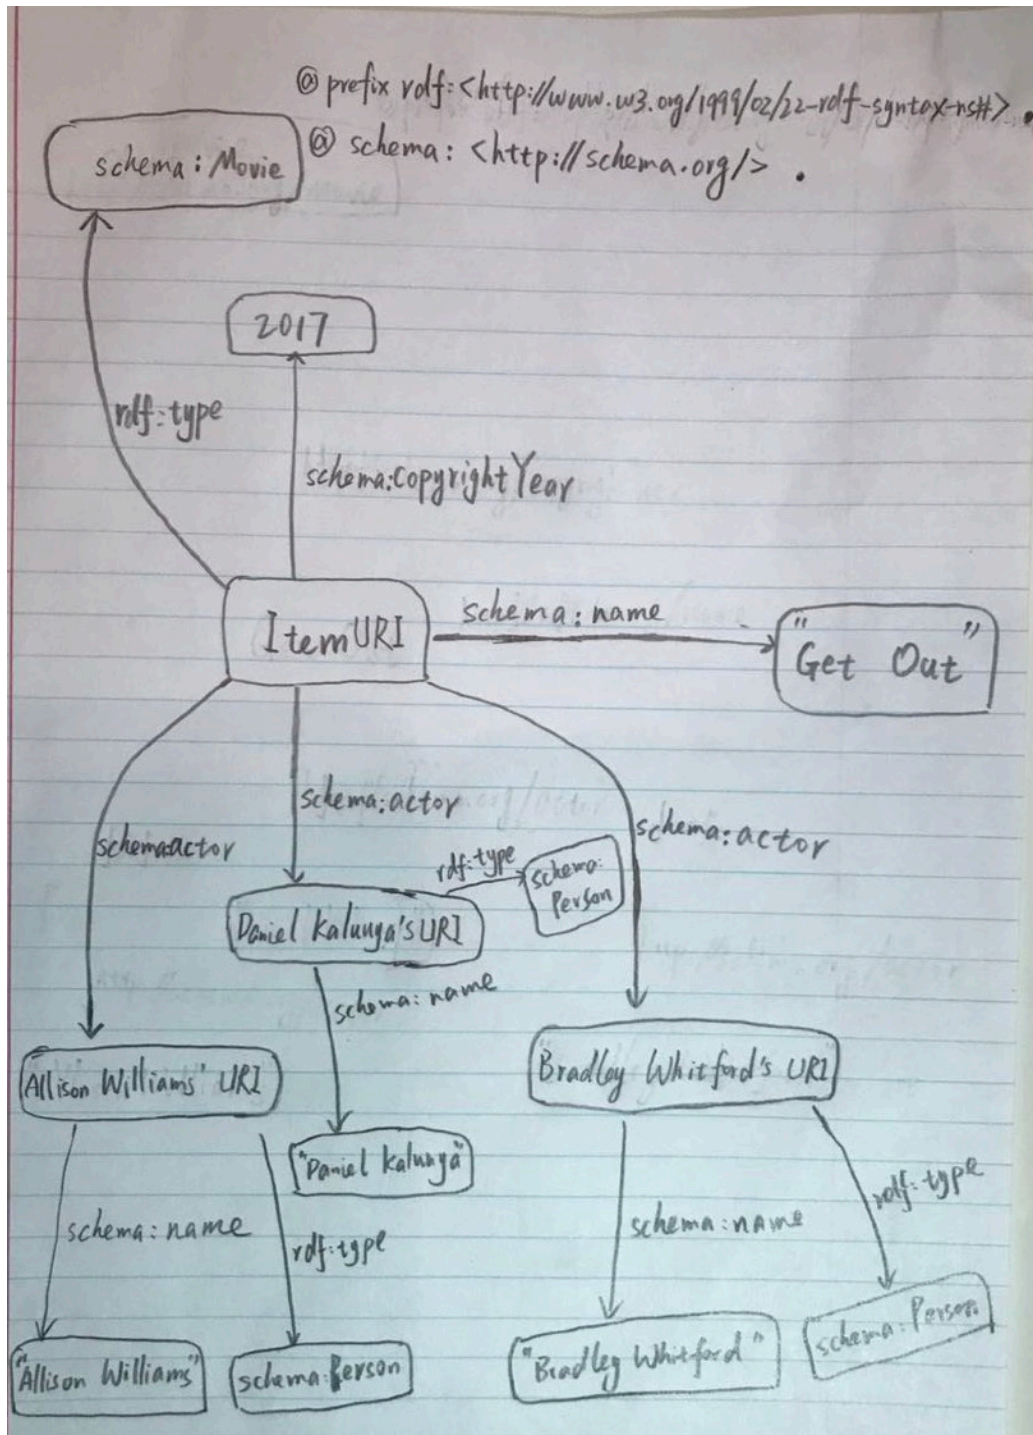 @prefix rdf:<http://www.w3.org/1999/02/22-rdf-syntax-ns#> .
@ schema: <http://schema.org/> .
schema: Movie
2017
rdf:type
schema:copyrightYear
ItemURI
schema: name
"Get Out"
schema:actor
schema:actor
schema:actor
rdf:type
schema:
Person
Daniel Kaluuya's URI
schema: name
Allison Williams' URI
Bradley Whitford's URI
"Daniel Kaluuya"
schema: name
rdf:type
schema:name
rdf:type
"Allison Williams"
schema:Person
"Bradley Whitford"
schema:Person